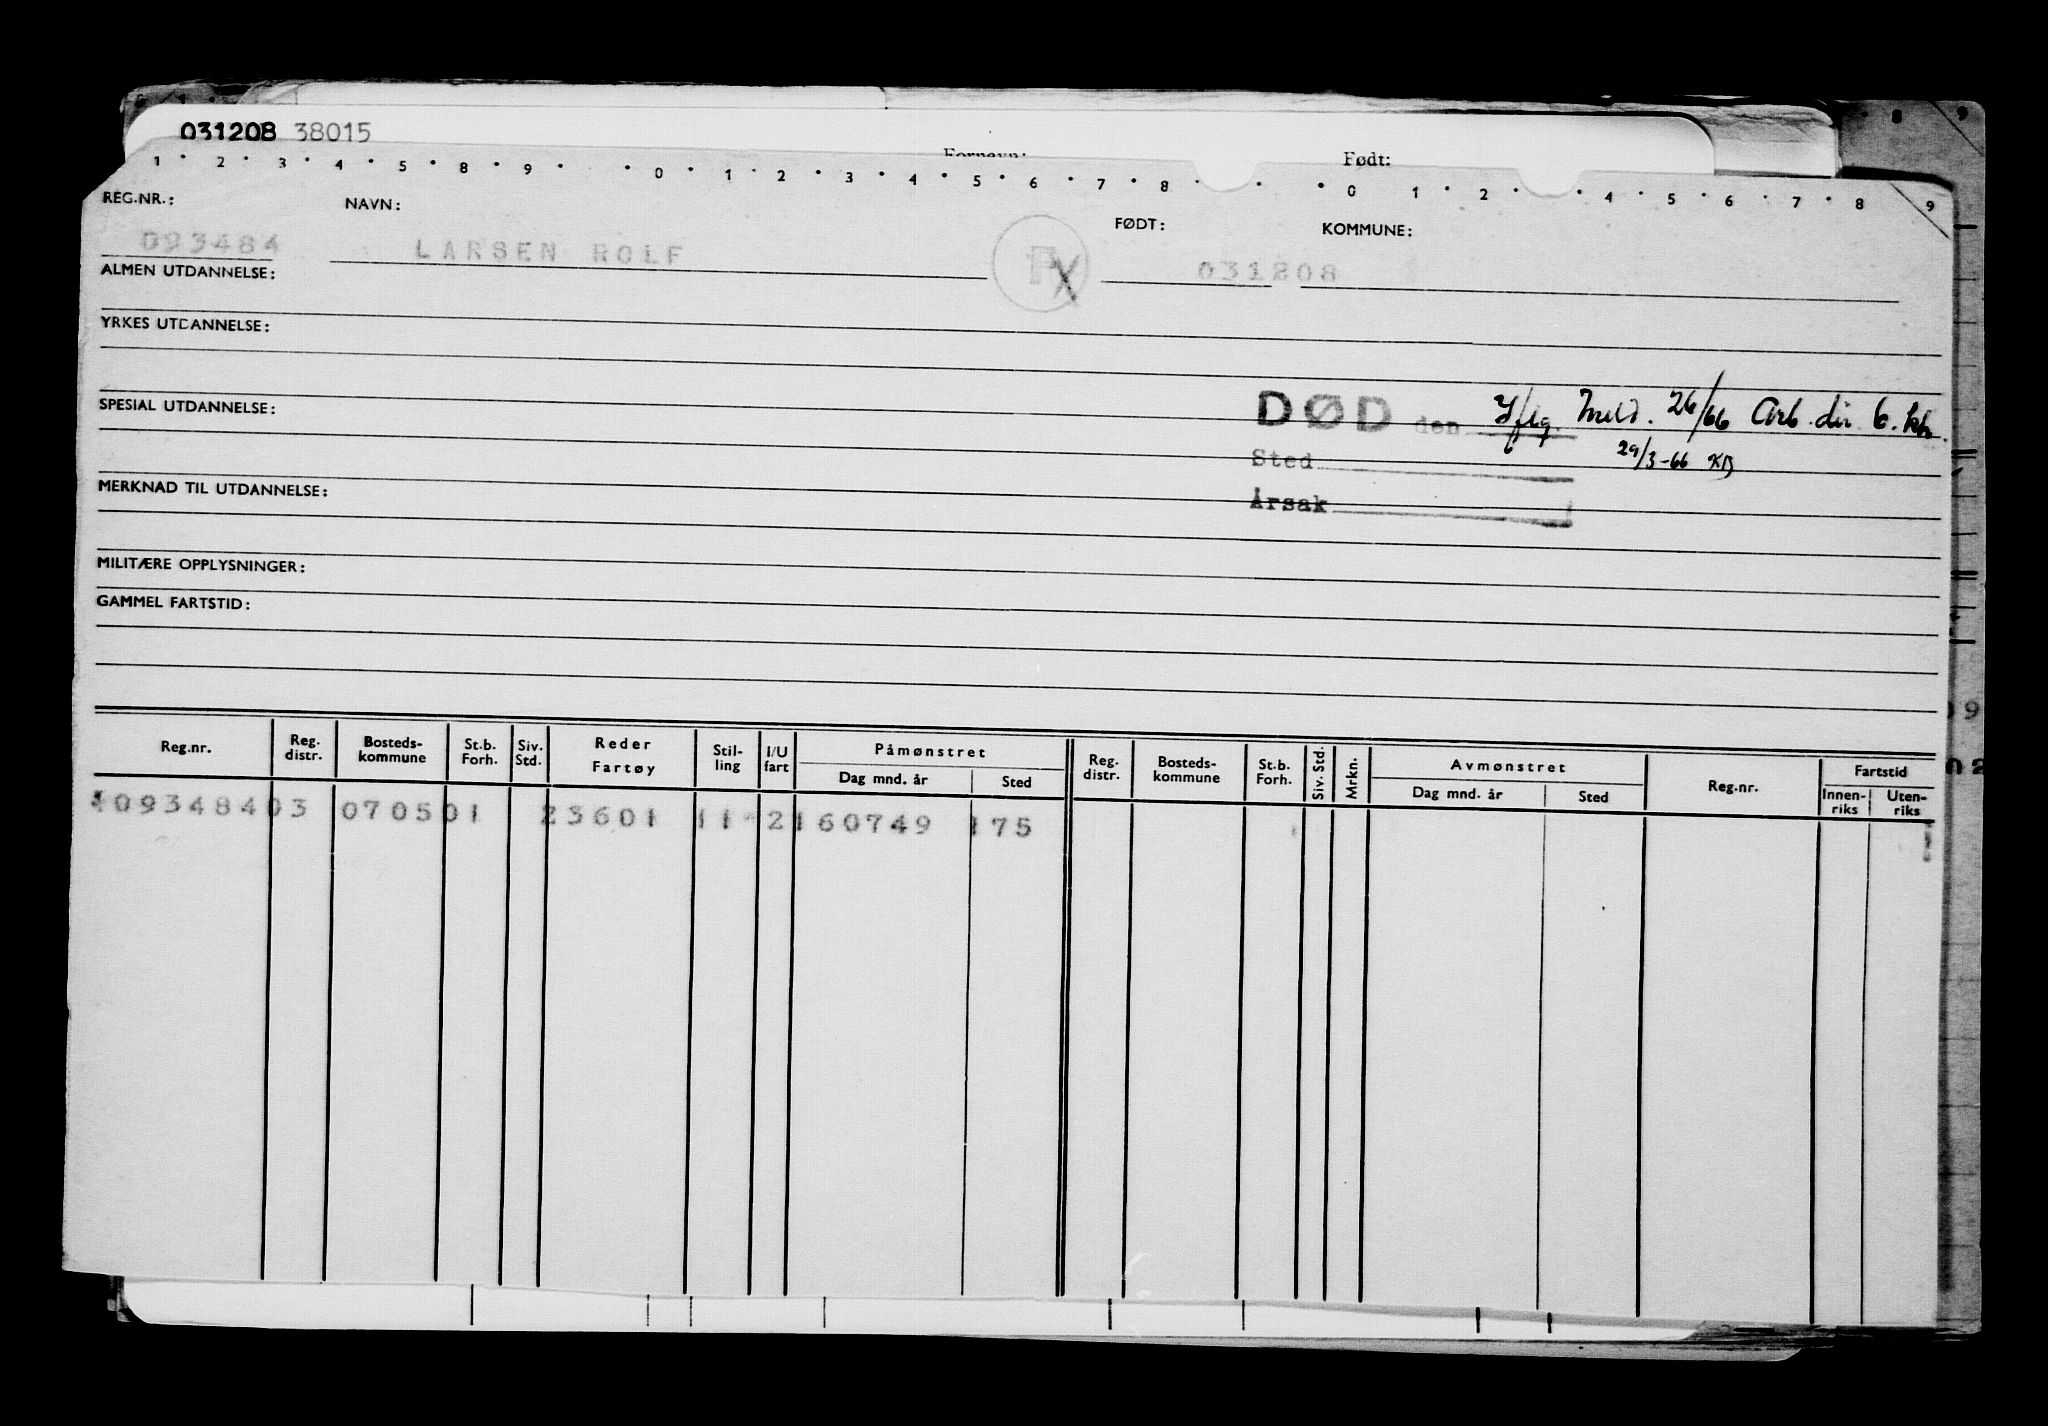 031208 38015
Fornavn: Født:
1 2 3 4 5 8 9 0 1 2 3 4 5 6 7 8 0 1 2 4 5 6 7 8 9
REG.NR.: NAVN: FØDT: KOMMUNE:
093484 LARSEN ROLF 031208
ALMEN UTDANNELSE:
YRKES UTDANNELSE:
SPESIAL UTDANNELSE:
DØD den Iflg. Meld. 26/66 Arb. dir. 6. kh.
29/3-66 KB
Sted
Årsak
MERKNAD TIL UTDANNELSE:
MILITÆRE OPPLYSNINGER:
GAMMEL FARTSTID:
Reg.nr. Reg. distr. Bosteds- kommune St.b. Forh. Siv. Std. Reder Fartøy Stil- ling I/U fart Påmønstret Dag mnd. år Sted Reg. distr. Bosteds- kommune St.b. Forh. Siv. Std. Mrkn. Avmønstret Dag mnd. år Sted Reg.nr. Fartstid Innen- riks Uten- riks
109348403 070501 23601 11 2160749 175